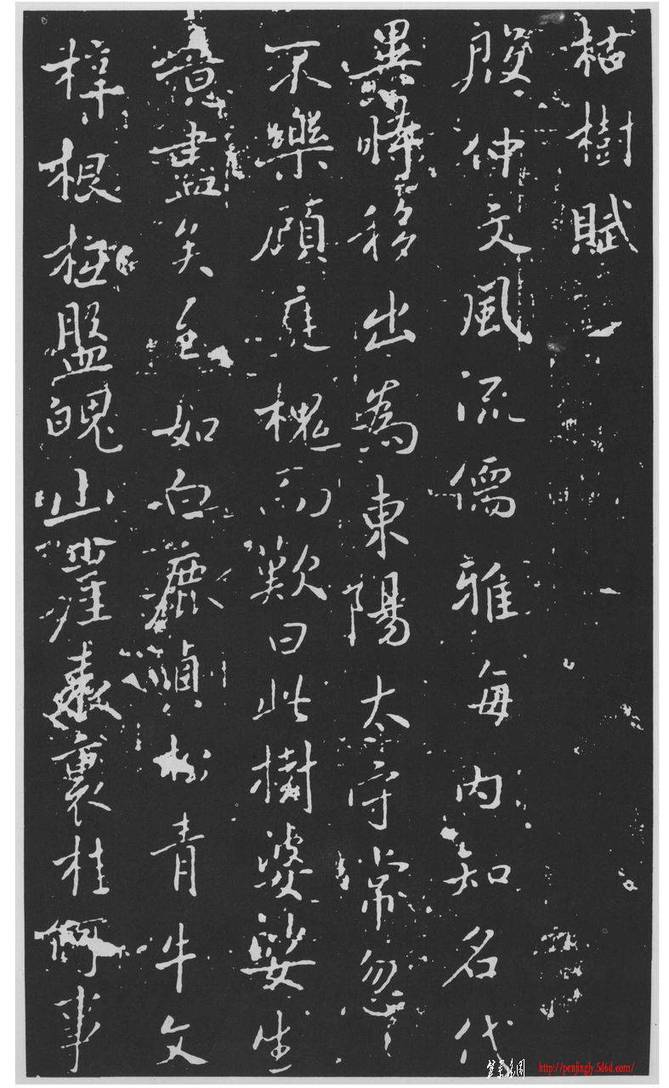 枯樹賦
殷仲文風流儒雅每內知名代
異時移出為東陽太守常忽々
不樂顧庭槐而歎曰此樹婆娑生
意盡矣至如白鹿貞松青牛文
梓根柢盤魄山崖表裏桂何事
http://penjingly.5d6d.com/